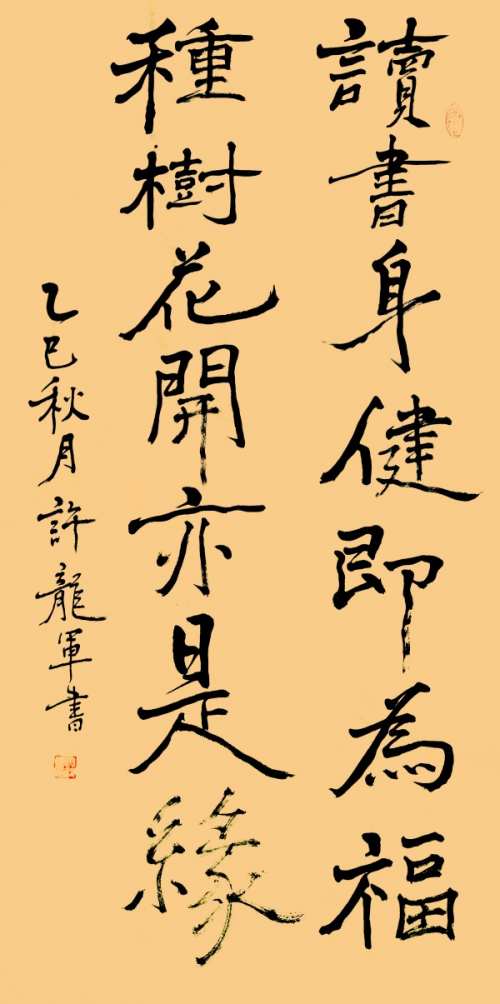 讀書身健即為福
種樹花開亦是緣
乙巳秋月許龍軍書